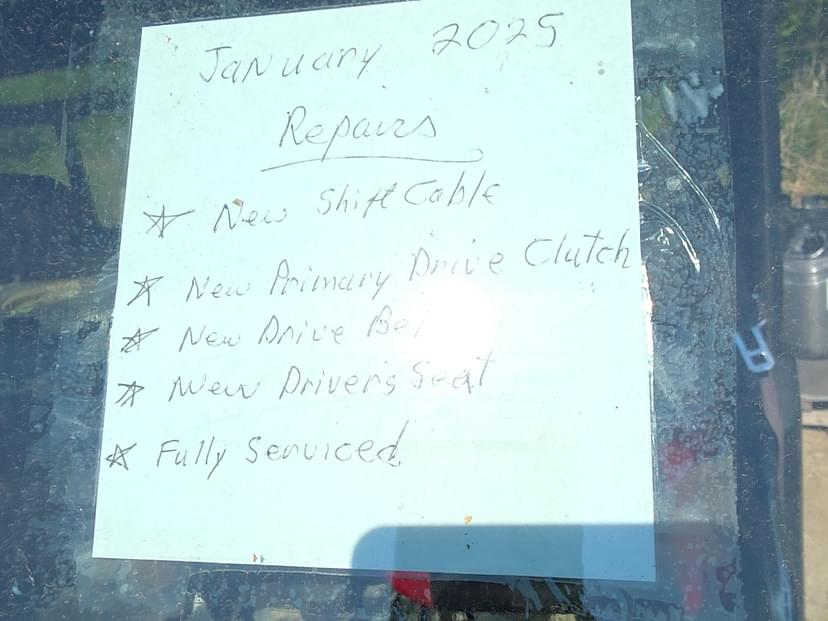 January 2025
Repairs
☆ New Shift Cable
☆ New Primary Drive Clutch
☆ New Drive
☆ New Driver's Seat
☆ Fully Serviced